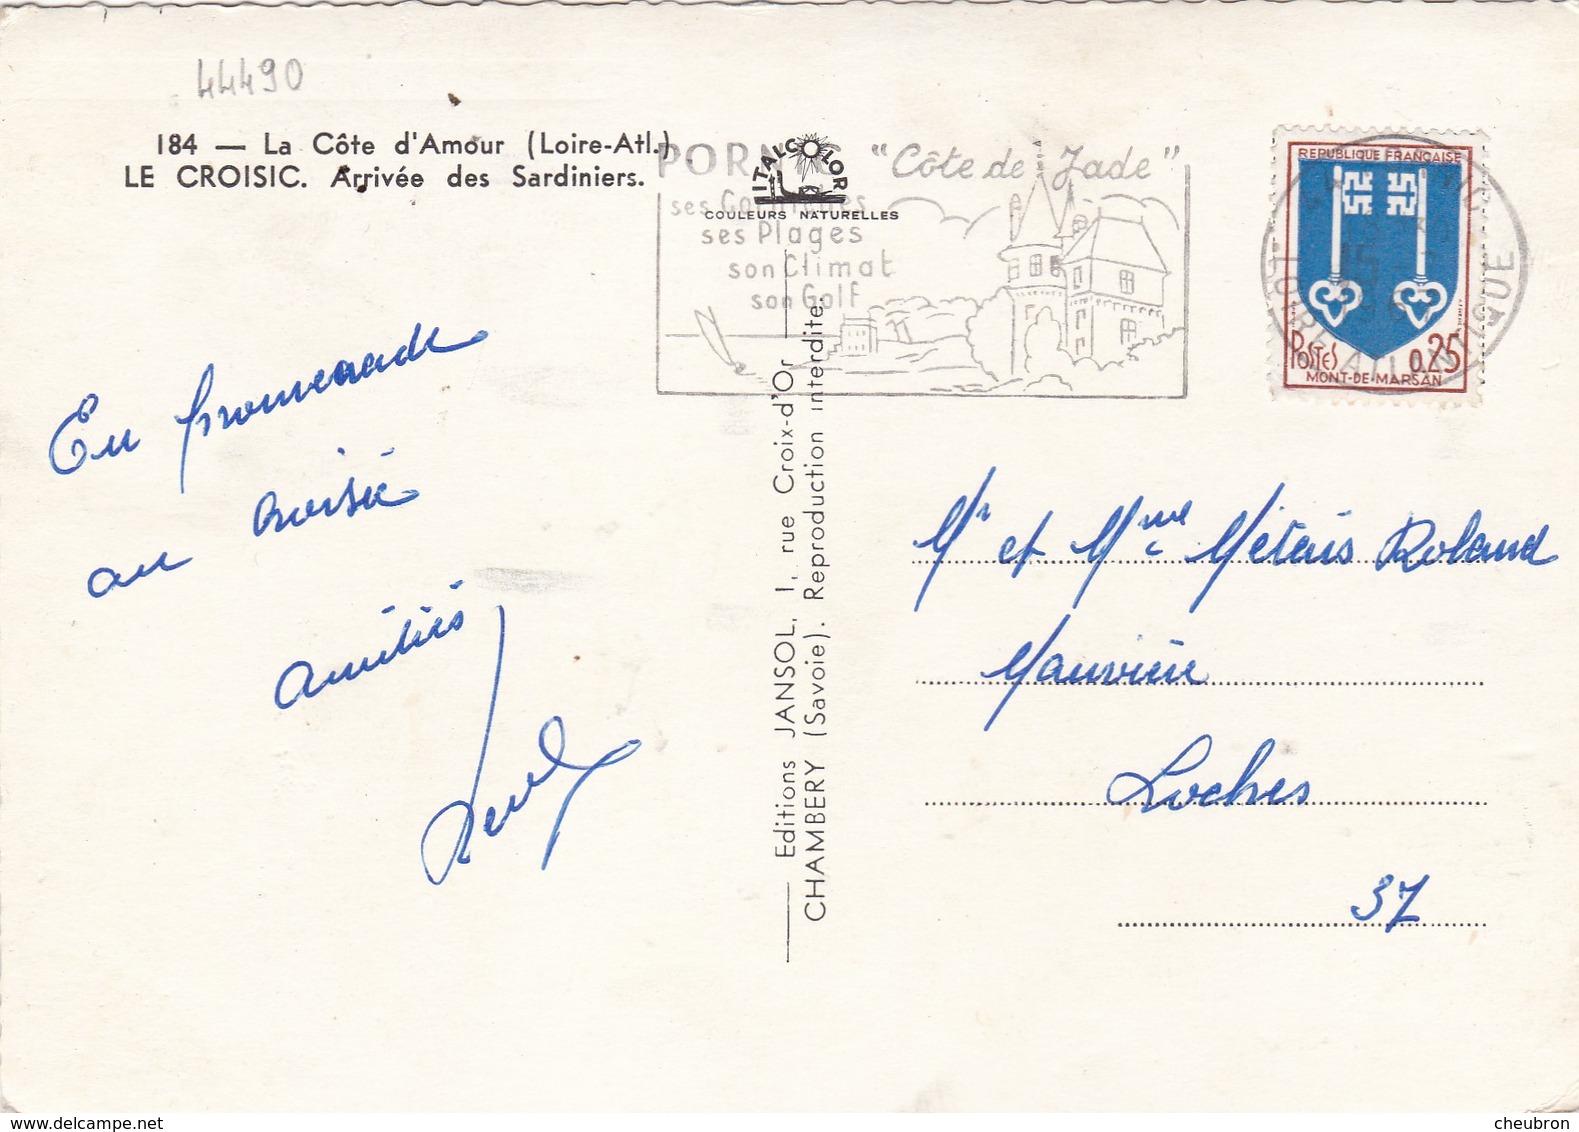 44490
184 — La Côte d'Amour (Loire-Atl.)
LE CROISIC. Arrivée des Sardiniers.
ITALCOLOR
COULEURS NATURELLES
PORNIC "Côte de Jade"
ses Corniches
ses Plages
son Climat
son Golf
REPUBLIQUE FRANÇAISE
POSTES 0,25
MONT-DE-MARSAN
LOIRE ATLANTIQUE
En promenade
au croisic
amitiés
Editions JANSOL, 1, rue Croix-d'Or
CHAMBERY (Savoie). Reproduction interdite.
Mr et Mme Métais Roland
Mauvière
Loches
37
cheubron
delcampe.net